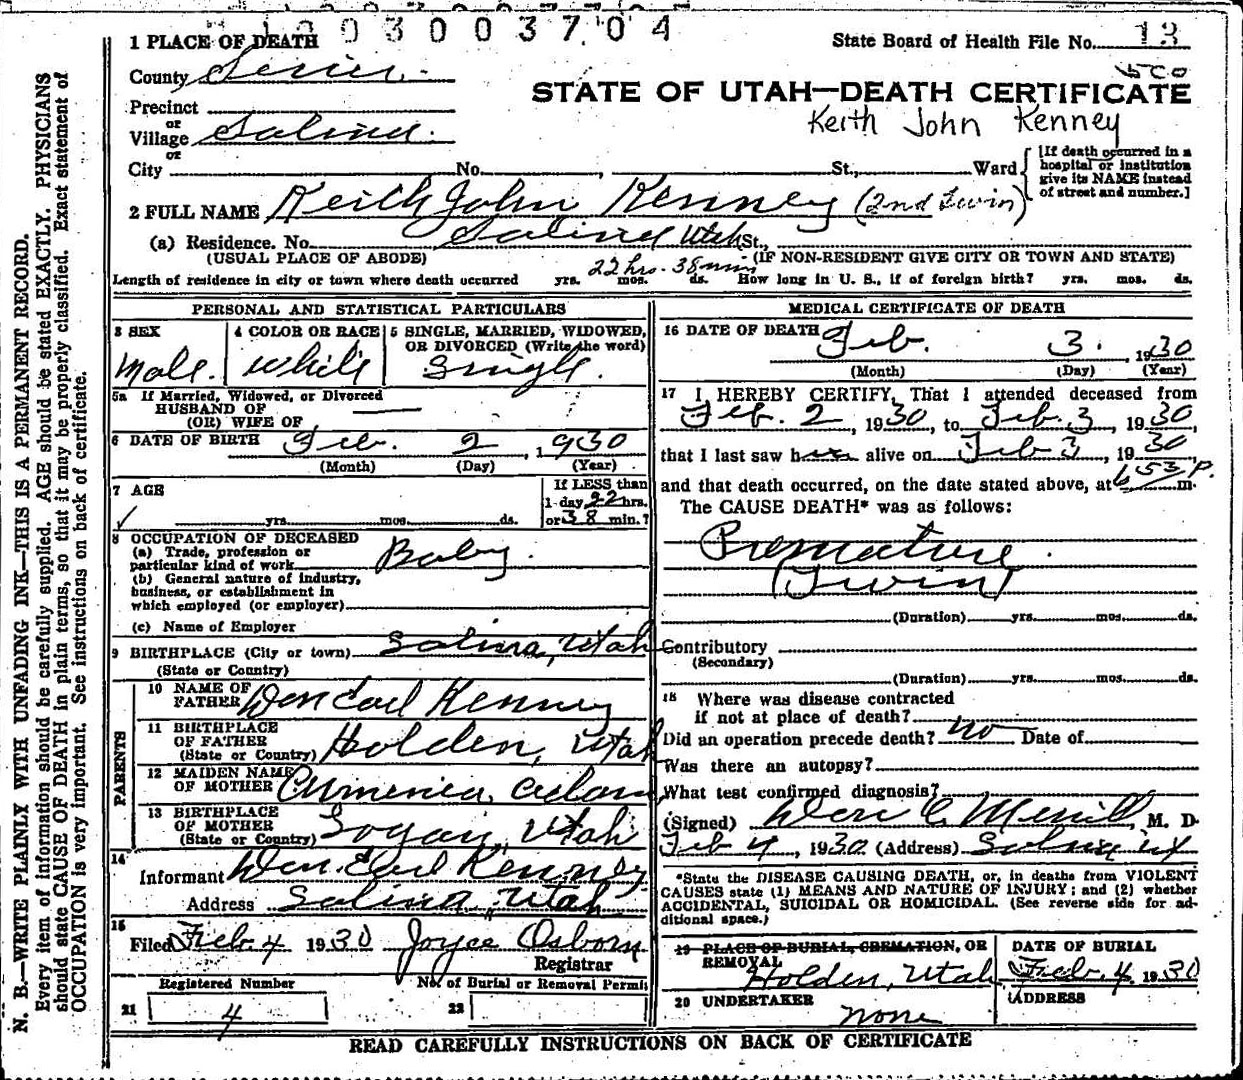 0 3 0 0 3 7 0 4
1 PLACE OF DEATH
State Board of Health File No. 13
County Sevier.
500
STATE OF UTAH—DEATH CERTIFICATE
Precinct
Keith John Kenney
or
Village Salina.
or
City No. , St., Ward
[If death occurred in a
hospital or institution
give its NAME instead
of street and number.]
2 FULL NAME Keith John Kenney (2nd Twin)
(a) Residence. No. Salina Utah St.,
(USUAL PLACE OF ABODE) (IF NON-RESIDENT GIVE CITY OR TOWN AND STATE)
22 hrs. 38 min
Length of residence in city or town where death occurred yrs. mos. ds. How long in U. S., if of foreign birth? yrs. mos. ds.
PERSONAL AND STATISTICAL PARTICULARS
3 SEX
Male.
4 COLOR OR RACE
White
5 SINGLE, MARRIED, WIDOWED,
OR DIVORCED (Write the word)
Single.
5a If Married, Widowed, or Divorced
HUSBAND OF
(OR) WIFE OF
6 DATE OF BIRTH Feb. 2, 1930
(Month) (Day) (Year)
7 AGE
yrs. mos. ds.
If LESS than
1 day 22 hrs.
or 38 min.?
8 OCCUPATION OF DECEASED
(a) Trade, profession or
particular kind of work Baby.
(b) General nature of industry,
business, or establishment in
which employed (or employer)
(c) Name of Employer
9 BIRTHPLACE (City or town) Salina, Utah
(State or Country)
PARENTS
10 NAME OF
FATHER Den Earl Kenney
11 BIRTHPLACE
OF FATHER
(State or Country) Holden, Utah
12 MAIDEN NAME
OF MOTHER Armenia Adams
13 BIRTHPLACE
OF MOTHER
(State or Country) Logan, Utah
14
Informant Den Earl Kenney
Address Salina, Utah
15
Filed Feb. 4 1930 Joyce Osborn
Registrar
Registered Number No. of Burial or Removal Permit
21 4 22
MEDICAL CERTIFICATE OF DEATH
16 DATE OF DEATH Feb. 3. , 1930
(Month) (Day) (Year)
17 I HEREBY CERTIFY, That I attended deceased from
Feb. 2, 1930, to Feb. 3, 1930,
that I last saw him alive on Feb 3, 1930
and that death occurred, on the date stated above, at 6:53 P. m.
The CAUSE DEATH* was as follows:
Premature.
(Twin)
(Duration) yrs. mos. ds.
Contributory
(Secondary)
(Duration) yrs. mos. ds.
18 Where was disease contracted
if not at place of death?
Did an operation precede death? no Date of
Was there an autopsy?
What test confirmed diagnosis?
(Signed) C Merrill, M. D
Feb 4, 1930 (Address) Salina Ut
*State the DISEASE CAUSING DEATH, or, in deaths from VIOLENT
CAUSES state (1) MEANS AND NATURE OF INJURY; and (2) whether
ACCIDENTAL, SUICIDAL OR HOMICIDAL. (See reverse side for ad-
ditional space.)
19 PLACE OF BURIAL, CREMATION, OR
REMOVAL
Holden, Utah
DATE OF BURIAL
Feb. 4 1930
20 UNDERTAKER
none
ADDRESS
READ CAREFULLY INSTRUCTIONS ON BACK OF CERTIFICATE
N. B.—WRITE PLAINLY WITH UNFADING INK—THIS IS A PERMANENT RECORD.
Every item of information should be carefully supplied. AGE should be stated EXACTLY. PHYSICIANS
should state CAUSE OF DEATH in plain terms, so that it may be properly classified. Exact statement of
OCCUPATION is very important. See instructions on back of certificate.